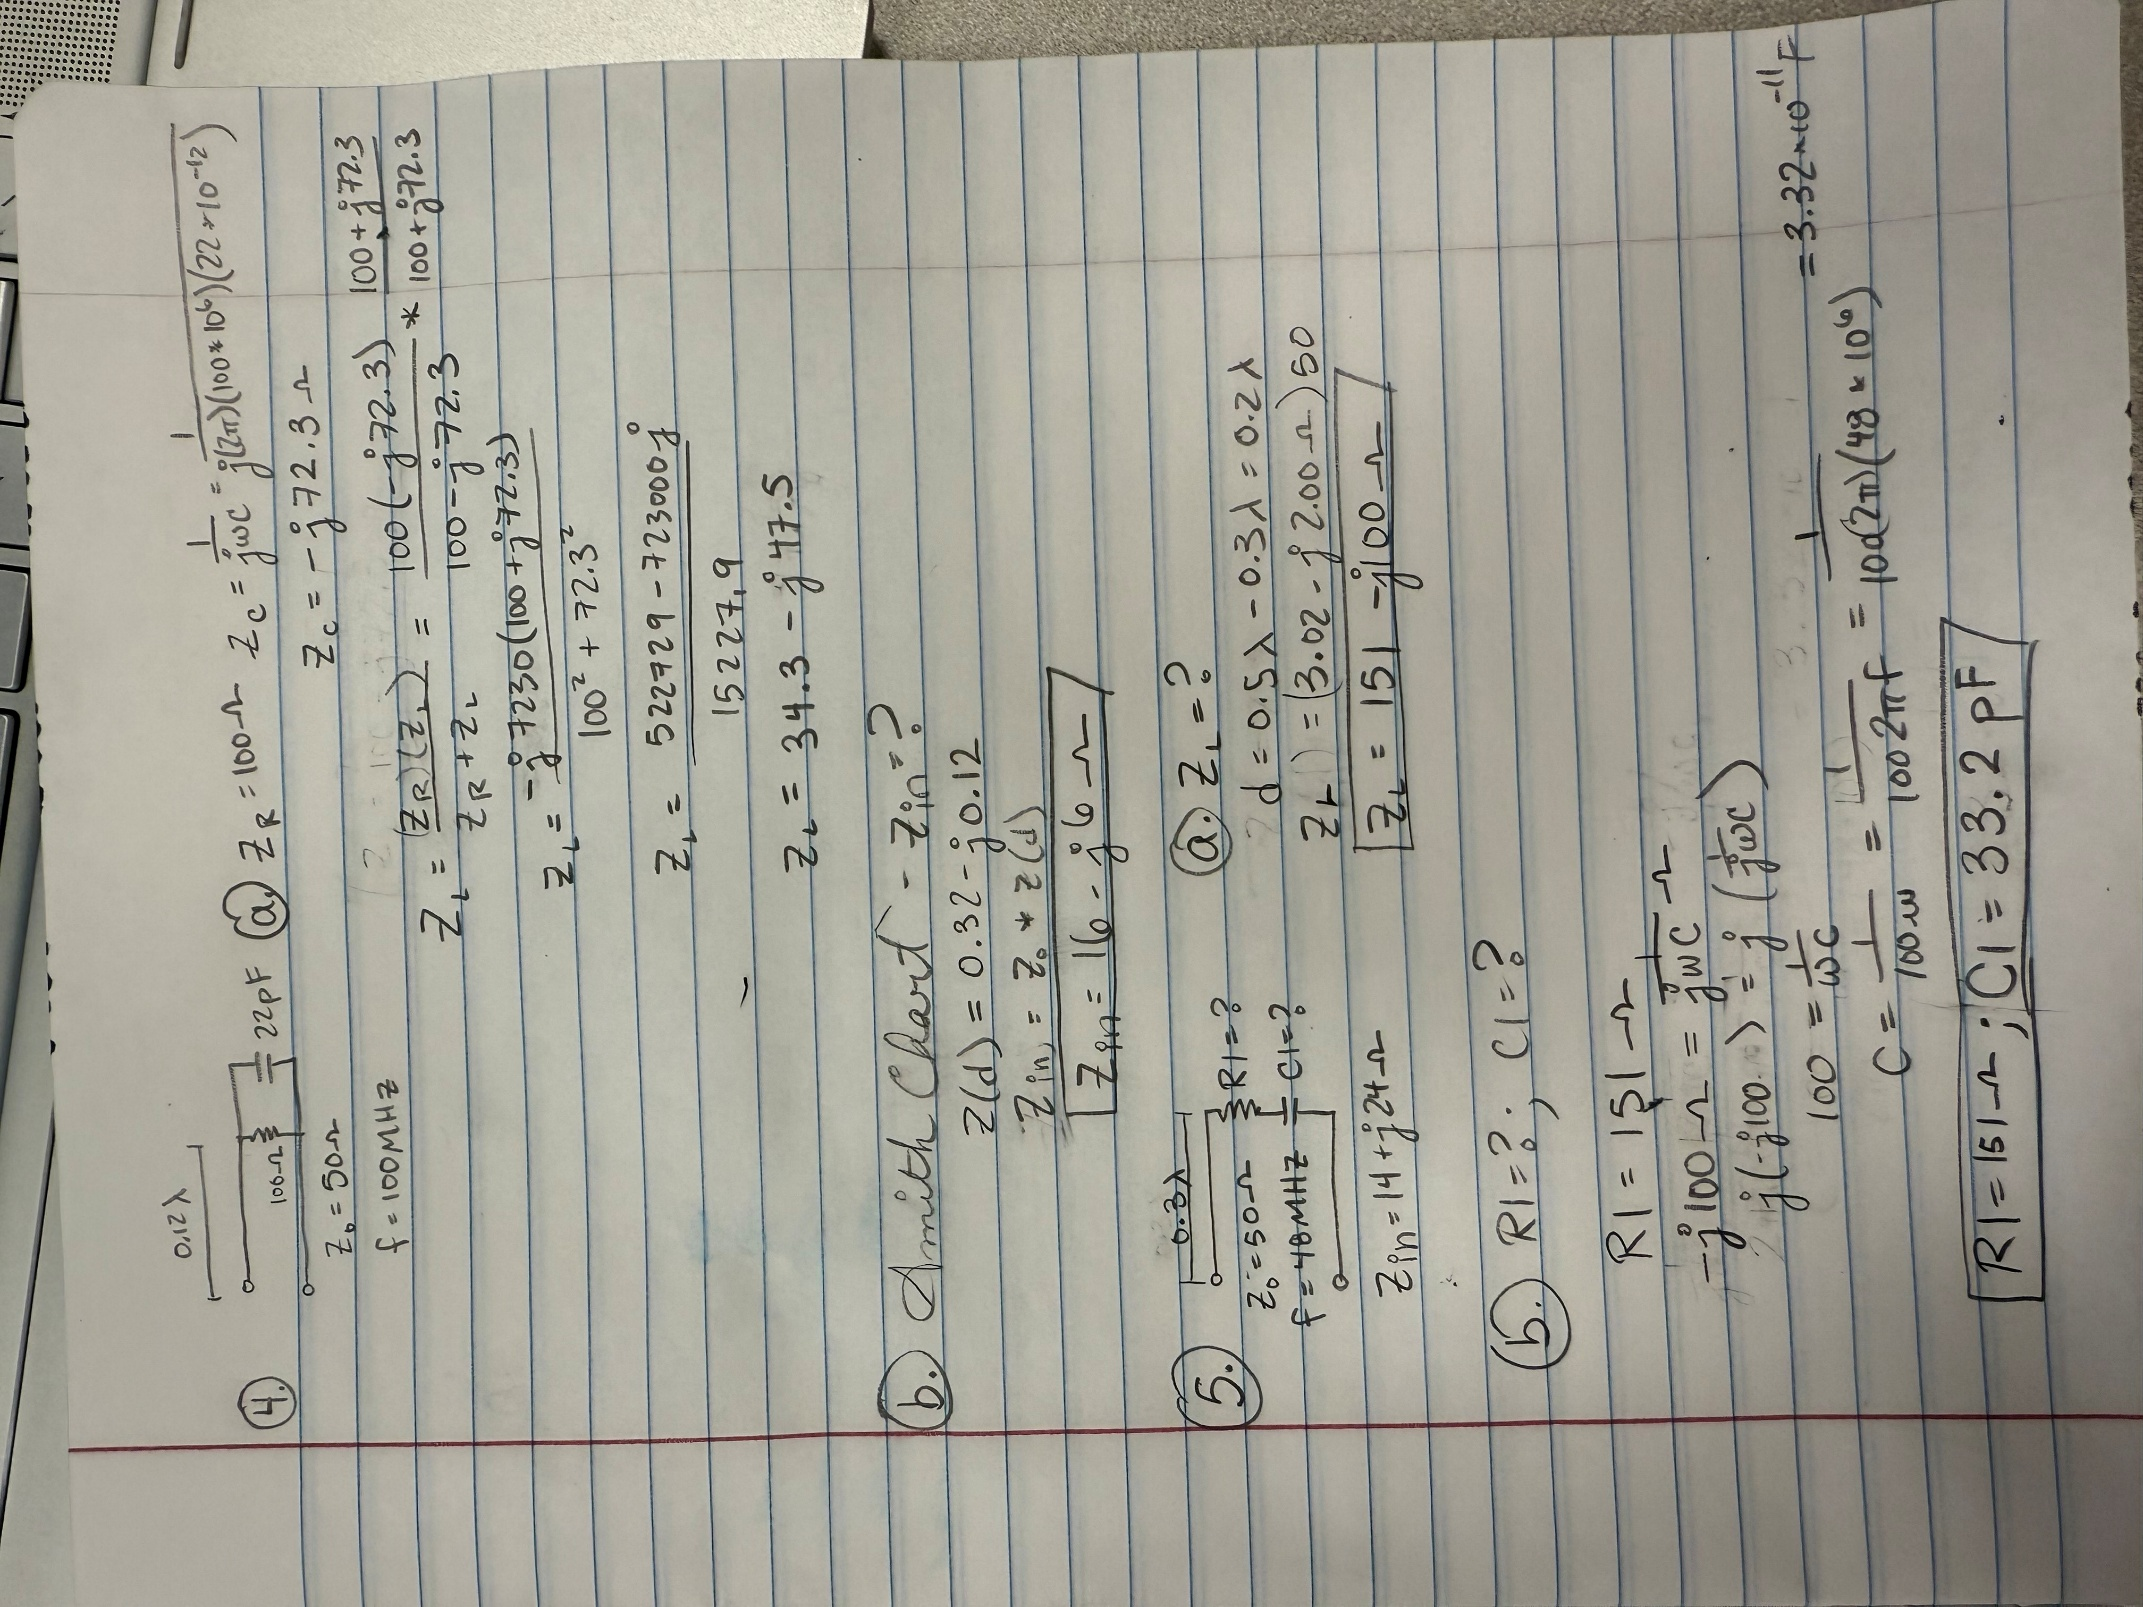 0.12λ
④. 100Ω 22pF ⓐ Z_R = 100Ω Z_C = 1/jωC = 1/j(2π)(100*10⁶)(22*10⁻¹²)
Z₀ = 50Ω Z_C = -j72.3Ω
f = 100MHz
Z_L = (Z_R)(Z_L)/Z_R+Z_L = 100(-j72.3)/100-j72.3 * 100+j72.3/100+j72.3
Z_L = -j7230(100+j72.3)/100² + 72.3²
Z_L = 522729 - 723000j/15227.9
Z_L = 34.3 - j47.5
ⓑ. Smith Chart - Zin = ?
Z(d) = 0.32 - j0.12
Zin = Z₀ * Z(d)
Zin = 16 - j6Ω
⑤. 0.3λ R1=? ⓐ. Z_L = ?
Z₀ = 50Ω d = 0.5λ - 0.3λ = 0.2λ
f = 48MHz C1=? Z_L = (3.02 - j2.00Ω)50
Zin = 14+j24Ω Z_L = 151 - j100Ω
ⓑ. R1=?; C1=?
R1 = 151Ω
-j100Ω = 1/jωC Ω
j(-j100) = j(1/jωC)
100 = 1/ωC
C = 1/100ω = 1/100 2πf = 1/100(2π)(48*10⁶) = 3.32*10⁻¹¹F
R1 = 151Ω; C1 = 33.2 pF